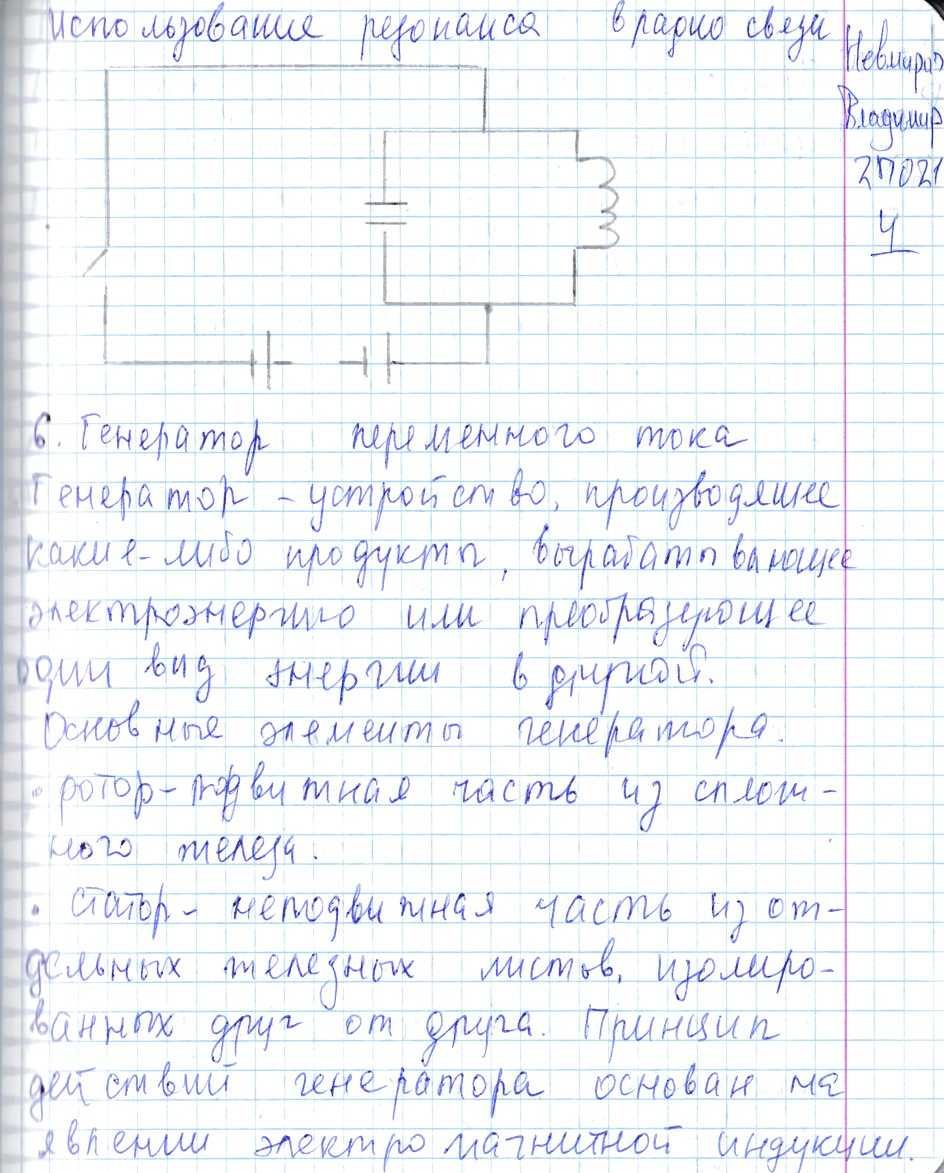 Использование резонанса в радио связи
Невмирап
Владимир
2П021
4
6. Генератор переменного тока
Генератор - устройство, производящее
какие-либо продукты, вырабатывающее
электроэнергию или преобразующее
один вид энергии в другой.
Основные элементы генератора.
• ротор - подвижная часть из сплош-
ного железа.
• Статор - неподвижная часть из от-
дельных железных листов, изолиро-
ванных друг от друга. Принцип
действий генератора основан на
явлении электромагнитной индукции.